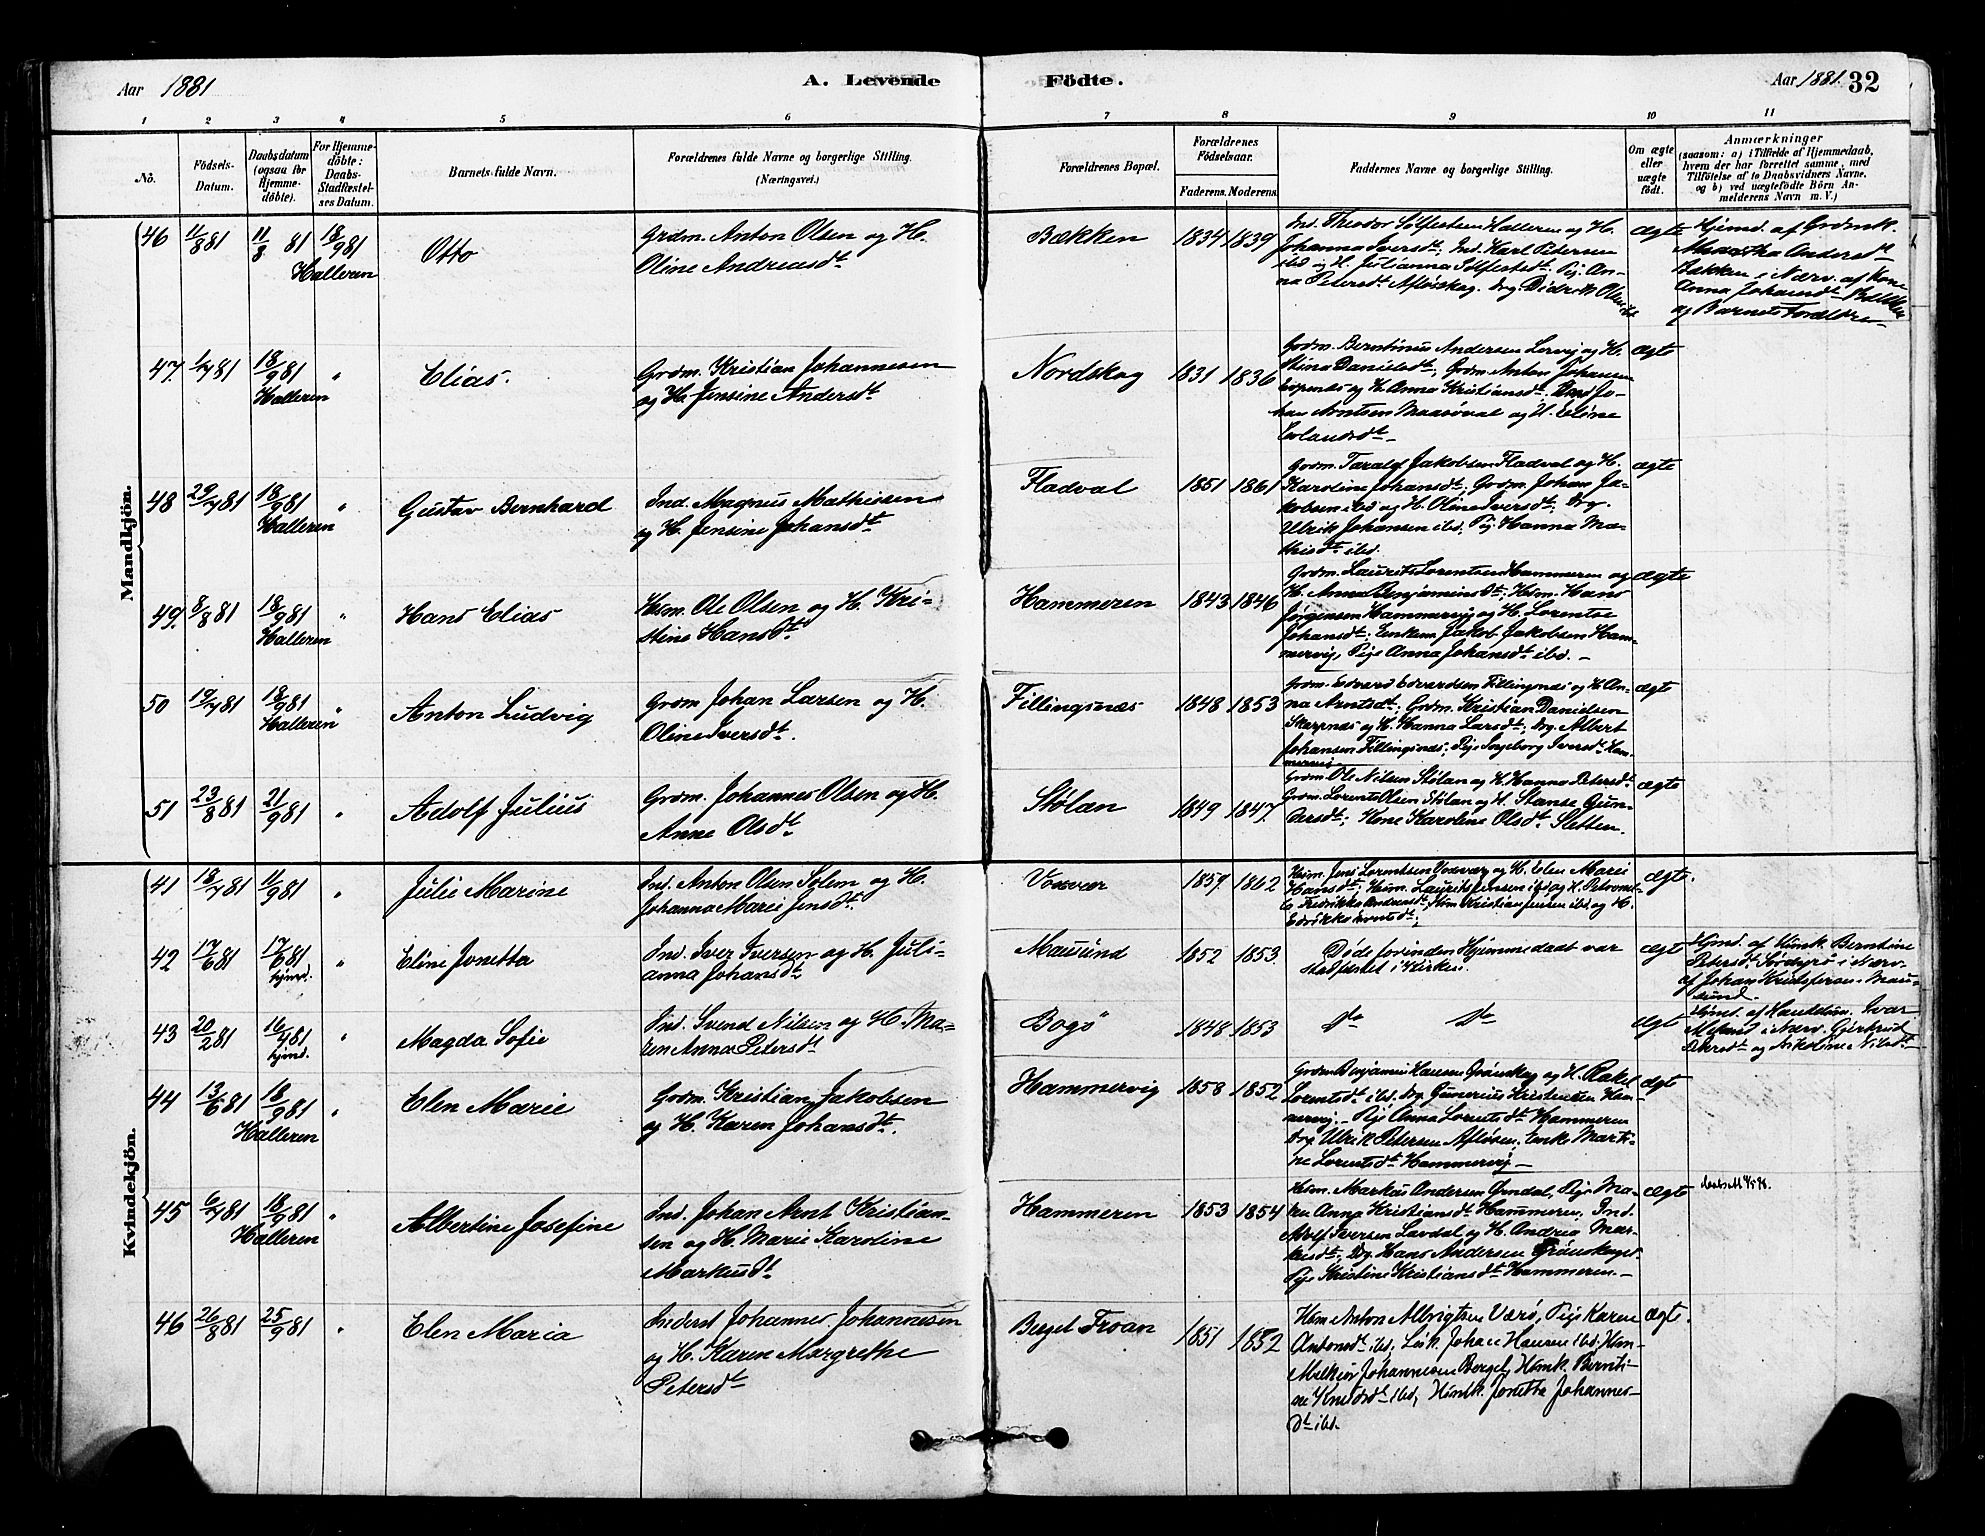 Aar 1881
A. Levende
Födte.
Aar 1881.
32
1 2 3 4 5 6 7 8 9 10 11
No.
Födsels-
Datum.
Daabsdatum
(ogsaa for
Hjemme-
döbte).
For Hjemme-
döbte:
Daabs-
Stadfæstel-
ses Datum.
Barnets fulde Navn.
Forældrenes fulde Navne og borgerlige Stilling.
(Næringsvei.)
Forældrenes Bopæl.
Forældrenes
Födselsaar.
Faderens. Moderens.
Faddernes Navne og borgerlige Stilling.
Om ægte
eller
uægte
födt.
Anmærkninger
(saasom: a) i Tilfælde af Hjemmedaab,
hvem der har forrettet samme, med
Tilföielse af to Daabsvidners Navne,
og b) ved uægtefödte Börn An-
melderens Navn m. V.)
Mandkjön.
46 11/8 81 11/8 81 18/9 81
Halleren
Otto
Grdm. Anton Olsen og H.
Oline Andreasdt
Bækken
1834 1839
Ind. Theodor Sølfestsen Halleren og H.
Johanna Iversdt; Ind. Karl Petersen
ibd og H. Julianna Sølfestsdt; Pig. An-
na Petersdt Afløskog. Ung. Didrik Olsen ibd
ægte
Hjemd. af Grdmk.
Maratha Andersdt
Bækken i Nærv. af Kone
Anna Johansdt Bækken
og Barnets Forældre
47. 1/7 81 18/9 81 "
Halleren
Elias.
Grdm. Kristian Johannesen
og H. Jensine Andersdt
Nordskag
1831 1836
Grdm. Berntinus Andersen Lervig og H.
Stina Danielsdt; Grdm. Anton Johansen
og H. Anna Kristiansdt. Jo-
han Arntsen Maasøval og H. Eline
Erlandsdt
ægte
48 29/7 81 18/9 81 "
Halleren
Gustav Bernhard
Ind. Magnus Mathisen
og H. Jensine Johansdt
Fladval
1851 1861
Grdm. Tarald Jakobsen Fladval og H.
Karoline Johansdt; Grdm. Johan Ja-
kobsen ibd og H. Oline Iversdt; Ung.
Ulrik Johansen ibd; Pig. Hanna Ma-
thisdt ibd.
ægte
49. 8/8 81 18/9 81 "
Halleren
Hans Elias
Husm. Ole Olsen og H. Kri-
stine Hansdt
Hammeren
1843 1846
Grdm. Laurits Lorentsen Hammeren og
H. Anna Benjaminsdt; Husm. Hans
Jørgensen Hammervig og H. Lorentse
Johansdt; Enkem. Jakob Jakobsen Ham-
mervig, Pige Anna Johansdt ibd.
ægte
50 19/7 81 18/9 81 "
Halleren
Anton Ludvig
Grdm Johan Larsen og H.
Oline Iversdt.
Fillingsnæs
1848 1853
Grdm. Edvard Edvardsen Fillingsnæs og H. An-
na Arntsdt; Grdm. Kristian Danielsen
Skarpnæs og H. Hanna Larsdt; Ung. Albert
Johansen Fillingsnæs; Pige Ingeborg Iversdt Ham-
mervig
ægte
51 23/8 81 21/9 81 "
Adolf Julius
Grdm. Johannes Olsen og H.
Anne Olsdt
Stølan
1849 1847.
Grdm. Ole Nilsen Stølan og H. Hanna Petersdt.
Grdm. Lorents Olsen Stølan og H. Stanse Gun-
dersdt; Kone Karoline Olsdt Sletten.
ægte
Kvindekjön.
41 18/7 81 11/9 81 "
Julie Marine
Ind. Anton Olsen Solem og H.
Johanna Marie Jensdt.
Vosvær
1857 1862
Husm. Jens Lorentsen Vosvær og H. Elen Marie
Hansdt; Husm. Laurits Jensen ibd og H. Petronel-
la Fredrikke Andreasdt; Husm Kristian Jensen ibd og H.
ægte.
42 17/6 81 17/6 81 "
hjmd.
Eline Jonetta
Ind. Iver Iversen og H. Juli-
anna Johansdt
Mausund
1852 1853.
Døde forinden Hjemmedaab var
stadfæstet i Kirken.
ægte
Hjmd. af Berntine
Petersdt i Nærv.
af Johan Kristofersen Mau-
sund.
43 20/2 81 16/4 81 "
hjmd.
Magda Sofie
Ind. Svend Nilsen og H. Ma-
ren Anna Petersdt
Bogø
1848 1853
Do Do
ægte
Hjmd. af Handelsm. Ivar
i Nærv. Gjertrud
Petersdt og Nikoline Nilsdt
44 13/6 81 18/9 81 "
Halleren
Elen Marie
Grdm. Kristian Jakobsen
og H. Karen Johansdt.
Hammervig
1858 1852
Grdm Benjamin Hansen Grønskag og H. Rakel
Lorentsdt ibd. Ung Gunerius Kristensen Ham-
mervig. Pige Anna Lorentsdt Hammeren
Ung. Ulrik Petersen Afløsen; Enke Marti-
ne Lorentsdt Hammervig
ægte
45 6/7 81 18/9 81 "
Halleren
Albertine Josefine
Ind. Johan Arnt Kristian-
sen og H. Marie Karoline
Markusdt
Hammeren
1853 1854
Husm. Markus Andersen Ørndal, Pige Ma-
ren Anna Kristiansdt Hammeren, Ind.
Adolf Iversen Lavdal og H. Andrea Mar-
kusdt; Ung. Hans Andersen Grønskaget
Pige Kristine Kristiansdt Hammeren
ægte
46 26/8 81 25/9 81 "
Elen Maria
Inderst Johannes Johannesen
og H. Karen Margrethe
Petersdt
Berget Froan
1851 1852
Hsm Anton Albrigtsen Værø, Pige Karen
Antonsdt ibd, Johan Hansen ibd. Hsm
Melkior Johannesen Berget, Hsmk. Bernti-
ne Knudsdt ibd, Hsmk. Jonetta Johannes-
dt ibd.
ægte.